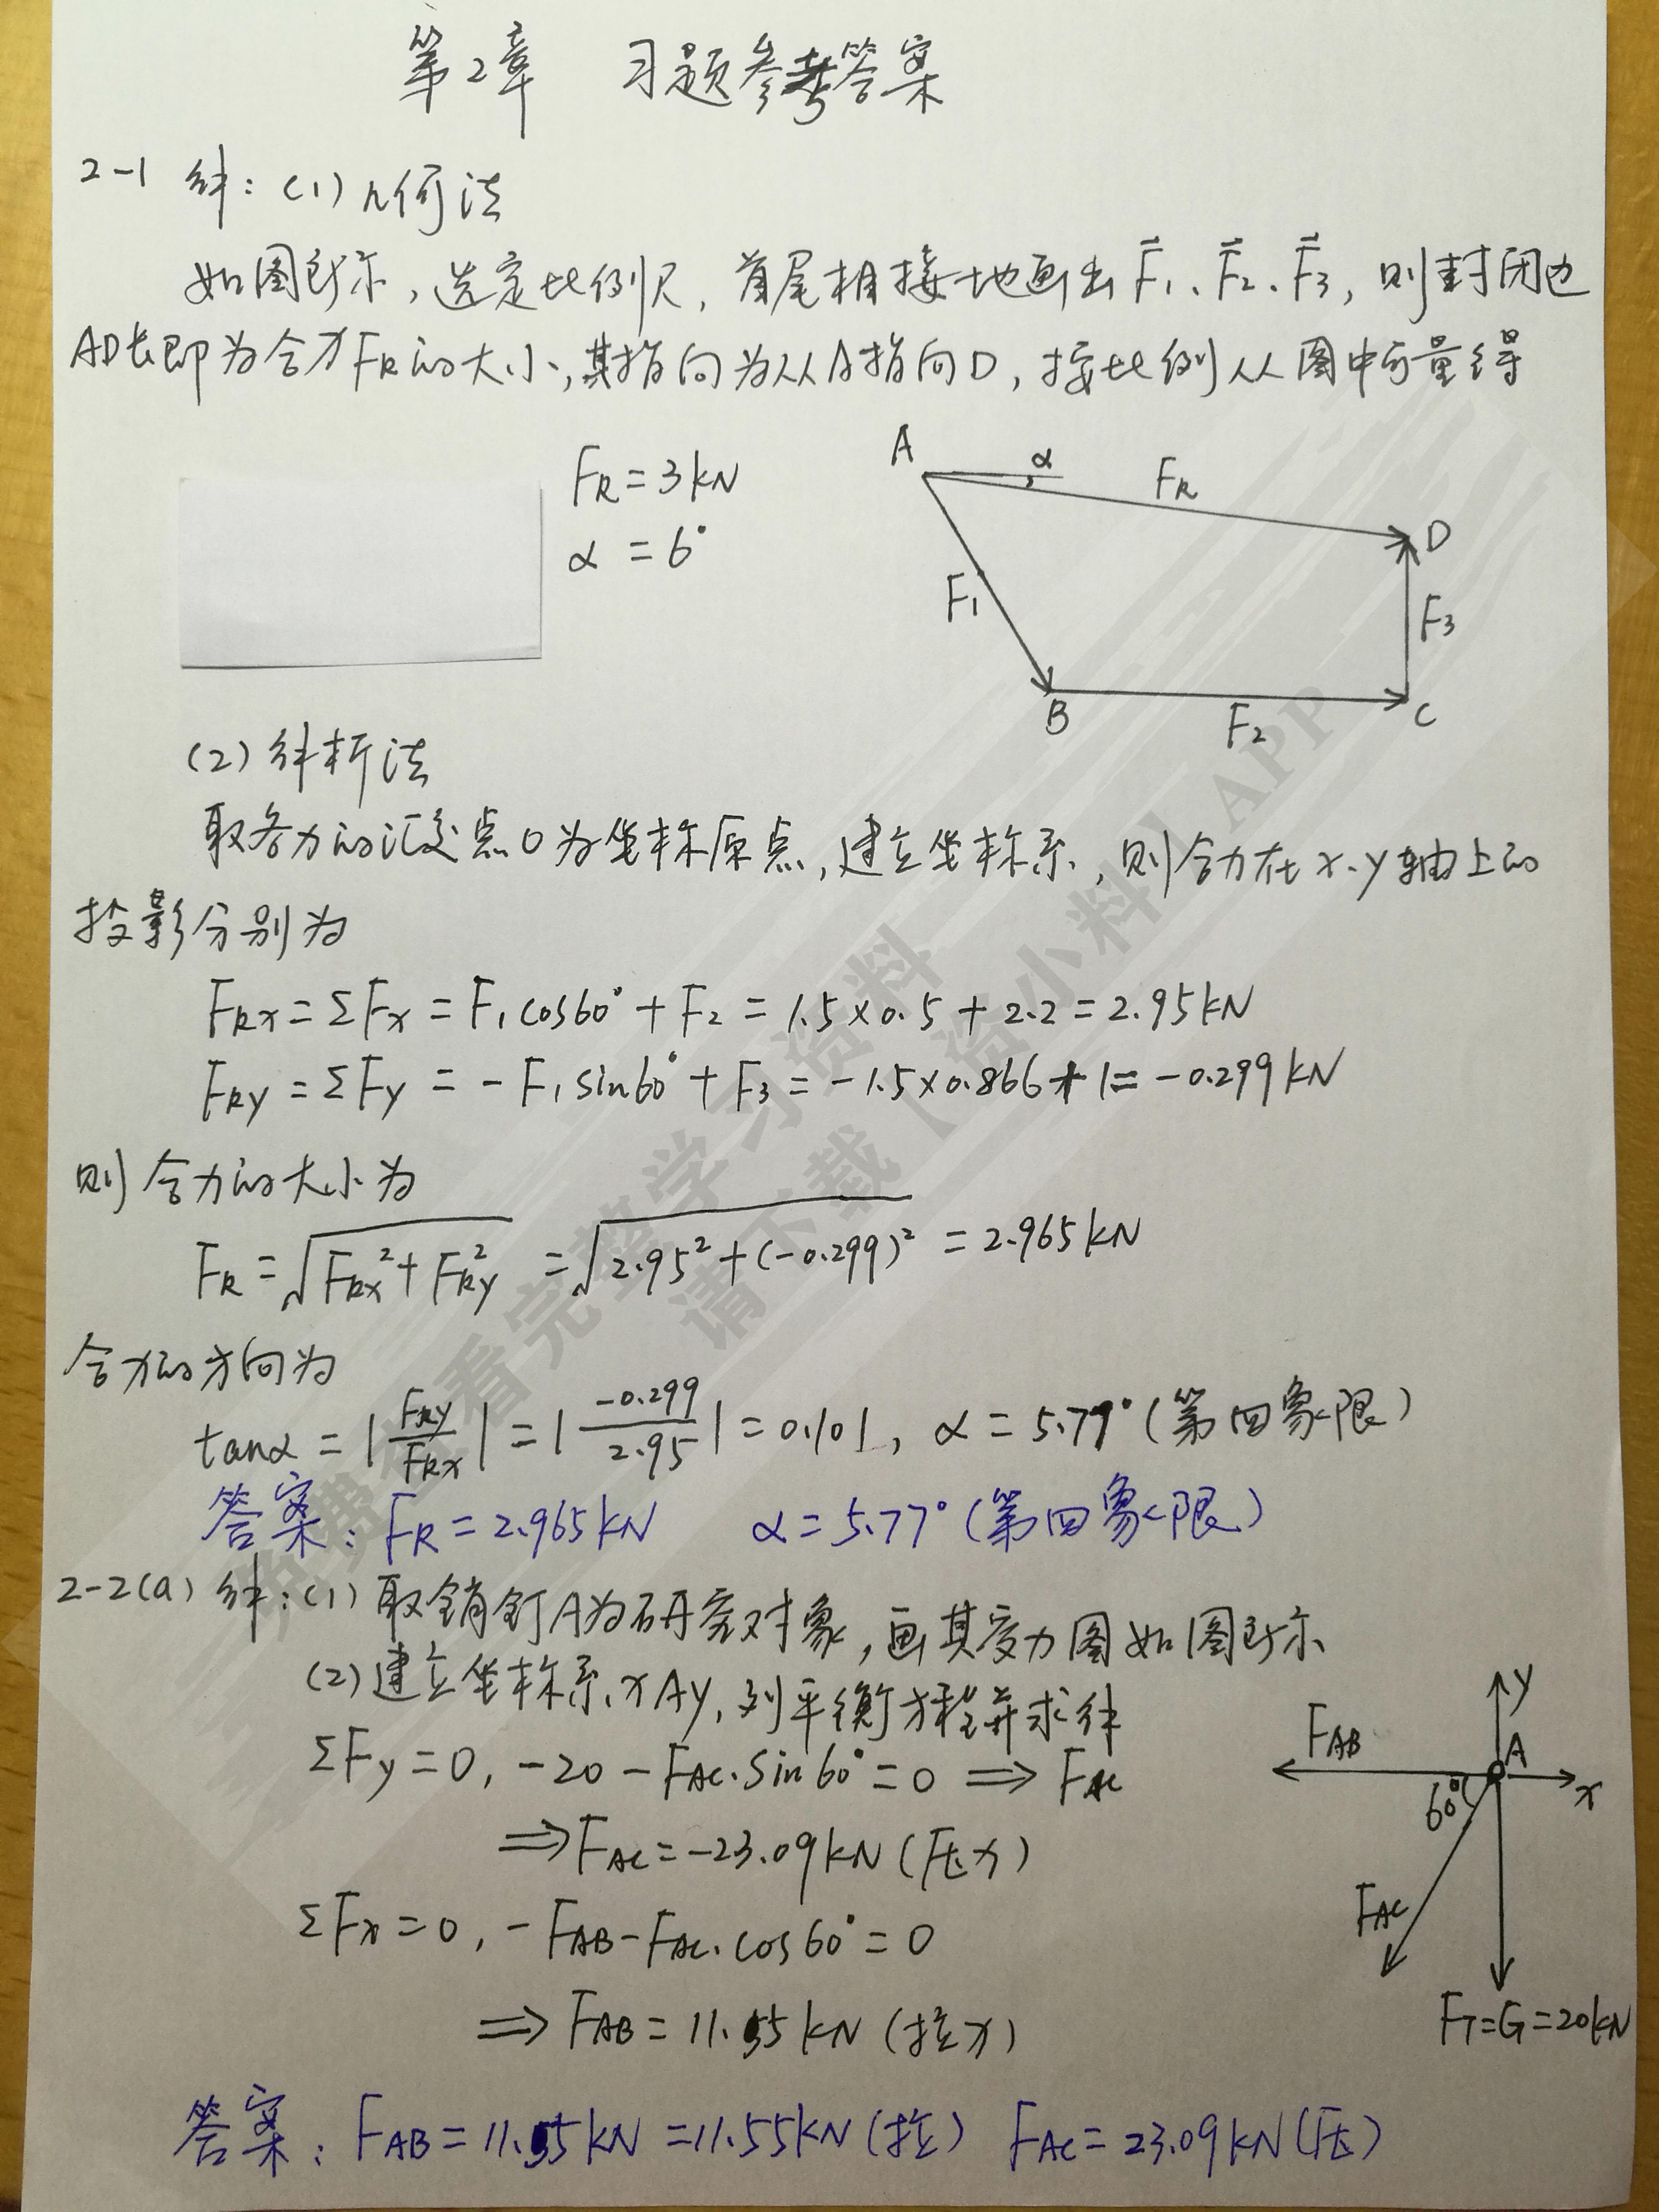 第2章 习题参考答案
2-1 解:(1)几何法
如图所示,选定比例尺,首尾相接地画出F⃗1、F⃗2、F⃗3,则封闭边
AD长即为合力FR的大小,其指向为从A指向D,按比例从图中可量得
FR=3kN
α=6°
A
α
FR
D
F1
F3
B
F2
C
(2)解析法
取各力的汇交点O为坐标原点,建立坐标系,则合力在x、y轴上的
投影分别为
FRx=ΣFx=F1cos60°+F2=1.5×0.5+2.2=2.95kN
FRy=ΣFy=-F1sin60°+F3=-1.5×0.866+1=-0.299kN
则合力的大小为
FR=√(FRx²+FRy²)=√(2.95²+(-0.299)²)=2.965kN
合力的方向为
tanα=|FRy/FRx|=|-0.299/2.95|=0.101, α=5.77°(第四象限)
答案:FR=2.965kN α=5.77°(第四象限)
2-2(a) 解:(1)取销钉A为研究对象,画其受力图如图所示
(2)建立坐标系xAy,列平衡方程并求解
ΣFy=0, -20-FAC·sin60°=0 ⇒ FAC
⇒FAC=-23.09kN(压力)
ΣFx=0, -FAB-FAC·cos60°=0
⇒FAB=11.55kN(拉力)
y
FAB
A
x
60°
FAC
FT=G=20kN
答案:FAB=11.55kN=11.55kN(拉) FAC=23.09kN(压)
免费查看完整学习资料
请下载【资小料】APP